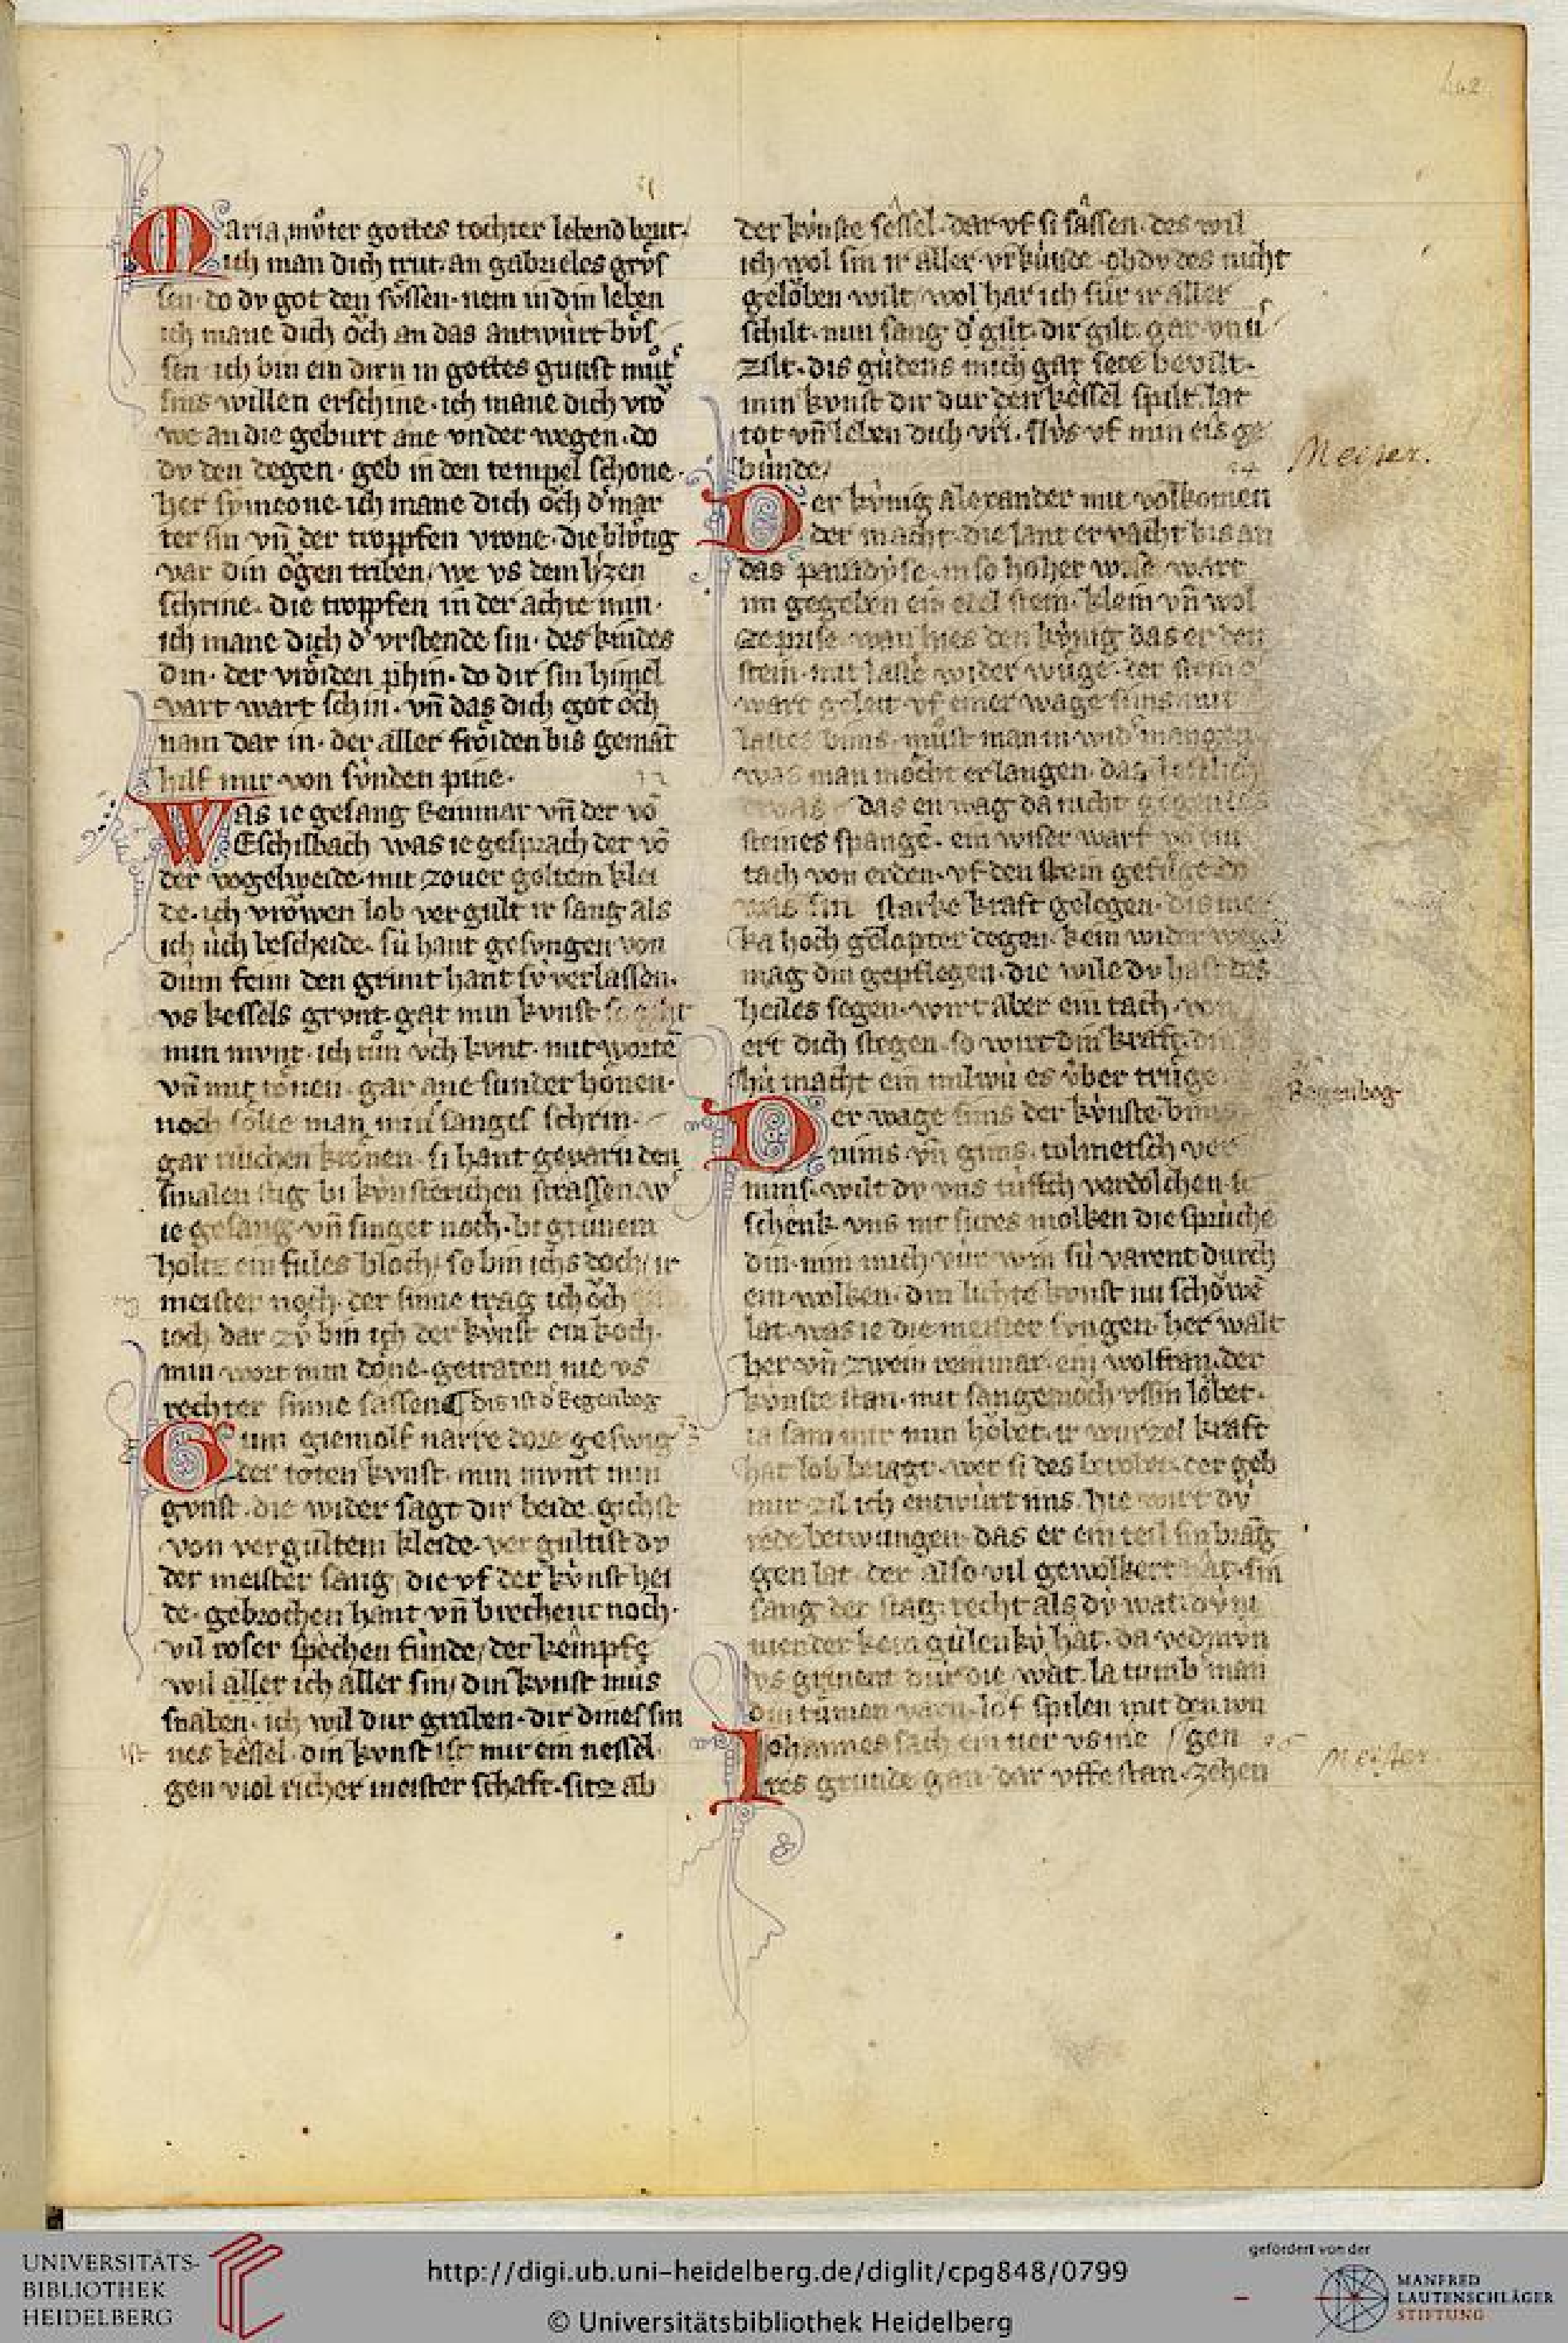 Maria, mv̊ter gottes tochter lebend brut.
ich man dich trut. an gabrieles grůs
sen. do dv got den sůssen. nem in din leben
ich mane dich ŏch an das antwùrt bůs
sen ich bin ein dirn in gottes gunst můt
sins willen erschine. ich mane dich vro
we an die geburt ane vnder wegen. do
dv den degen. geb in den tempel schone.
her symeone. ich mane dich och d' mar
ter sin vn̄ der tropfen vrone. die blv̊tig
var din ŏgen triben, we vs dem
schrine. die tropfen in der achte min.
ich mane dich d' vrstende sin. des kindes
din. der vrŏiden phin. do dir sin himel
vart wart schin. vn̄ das dich got ŏch
nam dar in. der aller frŏiden bis gemāt
hilf mir von sùnden pine.
Was ie gesang Reimar vn̄ der vō
Eschilbach was ie gesprach der vō
der vogelweide. mit zouer goltem klei
de. ich vrŏwen lob vergult ir sang als
ich ùch bescheide. sù hant gesvngen von
dùm feim den grunt hant sv̀ verlassen.
vs kessels grvnt. gat min kvnst so giht
min mvnt. ich tůn vch kvnt. mit wortē
vn̄ mit tŏnen. gar ane sunder hŏnen.
noch sŏlte man min sanges schrin.
gar rilichen krŏnen. si hant gevarn den
smalen stig bi kùnsterichen strassen. w'
ie gesang vn̄ singet noch. bi grùnem
holtz ein fùles bloch, so bin ichs doch, ir
meister noch. der sinne trag ich ŏch
ioch. dar zv̊ bin ich der kùnst ein koch.
min wort min dŏne. getraten nie vs
rechter sinne sassen ¶ dis ist d' Regenbog
Gum giemolf narre dore geswig
der toten kvnst. min mvnt min
gvnst. die wider sagt dir beide. gichst
von vergùltem kleide. vergultist dv
der meister sang, die vf der kùnst hei
de. gebrochen hant vn̄ brechent noch.
vil roser spechen fùnde, der kempfe
wil aller ich aller sin, din kvnst mùs
snaben. ich wil dur graben. dir dines sin
nes kessel. din kvnst ist mir ein nessel.
gen viol richer meister schaft. sitz ab
der kùnste sessel. dar vf si sâssen. des wil
ich wol sin ir aller vrkùnde. ob dv des nicht
gelŏben wilt, wol har ich fùr ir aller
schilt. min sang d' gilt. dir gilt. gar vnv'
zilt. dis gùdens mich gar sere bevilt.
min kvnst dir dur den kessel spilt. lat
tot vn̄ leben dich vri. slvs vf min eis ge
bùnde,
24
Meister.
Der kùnig alexander mit volkomen
der macht. die lant ervacht bis an
das paradyse. in so hoher wise wart
im gegeben ein edel stein. klein vn̄ wol
ze prise. man hies den kùnig das er den
stein. mit laste wider wùge. der stein d'
wart geleit vf einer wage sims. mit
lastes bims. mùst man in wid' mangen
was man mocht erlangen. das
das en wag da nicht gegen des
steines spange. ein wiser warf
tach von erden. vf den stein gefùge. do
was sin starke kraft gelegen. dis mer
ka hoch gelopter degen. kein wider wegē
mag din gepflegen. die wile dv hast des
heiles segen. wirt aber ein tach. von
ert dich stegen. so wirt din kraft.
macht ein milwù es ùber trùge.
Regenbog
Der wage sims der kùnste bims
nims vn̄ gims. tolmetsch ver
nims. wilt dv vns tùtsch verdolchen. so
schenk vns nit sures molken die sprùche
din. min mich vùr win sù varent durch
ein wolken. din lichte kvnst nu schŏwē
lat. was ie die meister svngen. her walt
her vn̄ zwein reimar. ein wolfran. der
kùnste stan. mit sange
ia sam mir min hŏbet. ir wurzel kraft
hat lob beiagt. wer si des berobet. der geb
mir zil ich entwùrt ims. hie wirt dv
rede betwungen das er ein teil sin brag
gen lat. der also vil gewolkert hat. sin
sang der stat. recht als dv wat. dv ni
menderkein hat. da
vs grinent dùr die wat. la tumb' man
din tùmen varn. lof spilen mit den iùn
gen
25
meister.
Iohannes sach ein tier vs me
res grunde gan. dar vffe stan. zehen
UNIVERSITÄTS-
BIBLIOTHEK
HEIDELBERG
http://digi.ub.uni-heidelberg.de/diglit/cpg848/0799
© Universitätsbibliothek Heidelberg
gefördert von der
MANFRED
LAUTENSCHLÄGER
STIFTUNG